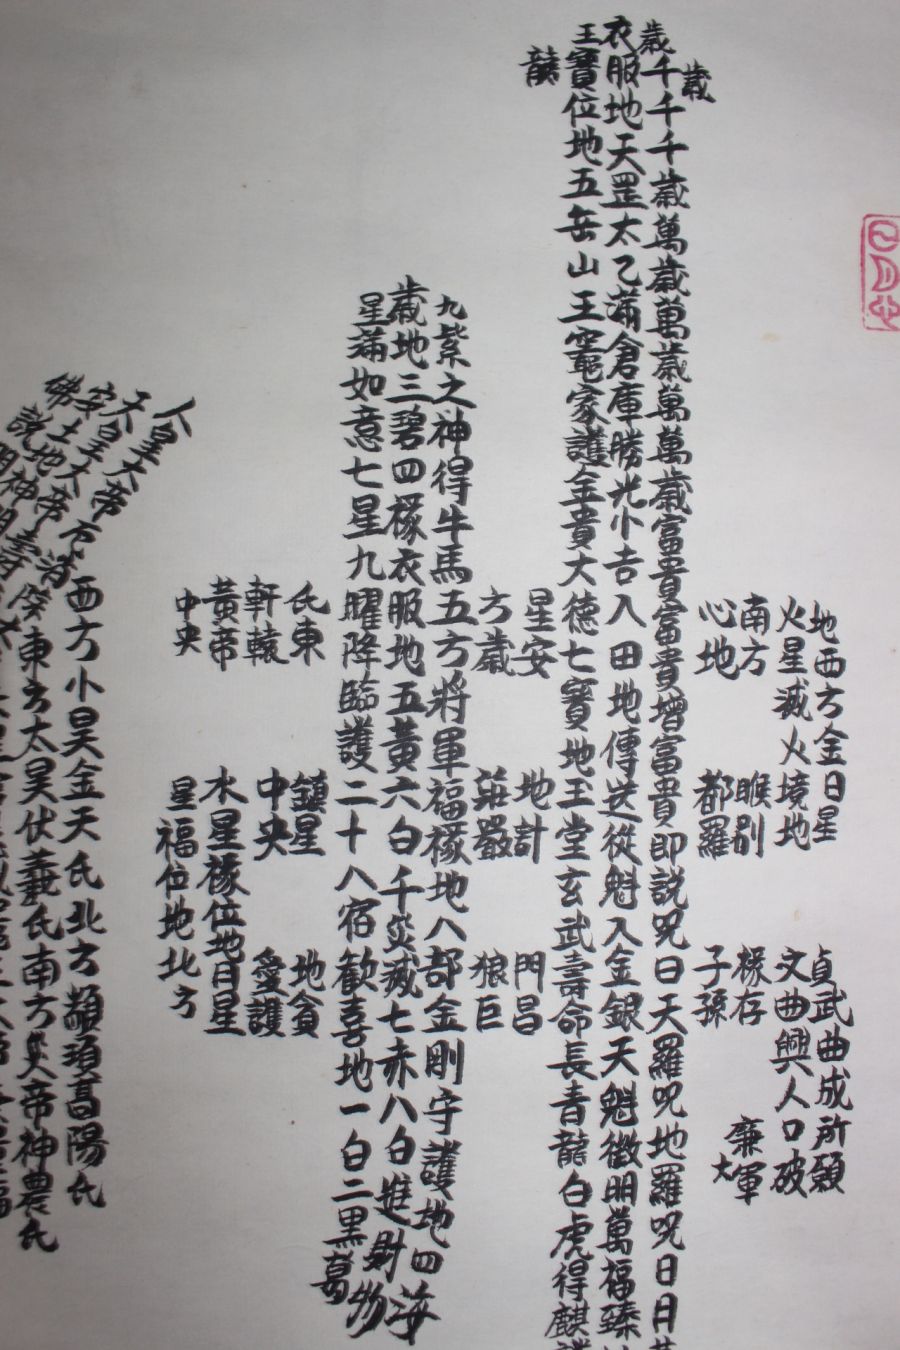 地西方金日星
火星滅火境地
南方
心地
睺別
都羅
貞武曲成所願
文曲興人口破
祿存
子孫
廉軍
大
歲
歲千千千歲萬歲萬歲萬萬歲富貴富貴增富貴即說呪曰天羅呪地羅呪日月
衣服地天罡太乙滿倉庫勝光小吉入田地傳送從魁入金銀天魁徵明萬福臻
王寶位地五岳山王竈家護金貴大德七寶地王堂玄武壽命長青龍白虎得麒
龍
星安
方歲
地計
莊嚴
門昌
狼巨
九紫之神得牛馬五方將軍福祿地八部金剛守護地四海
歲地三碧四祿衣服地五黃六白千災滅七赤八白進財物
星滿如意七星九曜降臨護二十八宿歡喜地一白二黑萬
氏東
軒轅
黃帝
中央
鎮星
中央
水星祿位地月星
星福位地北方
地貪
愛護
人皇大帝
天皇大帝
西方小昊金天氏北方顓頊高陽氏
東方太昊伏羲氏南方炎帝神農氏
土地神